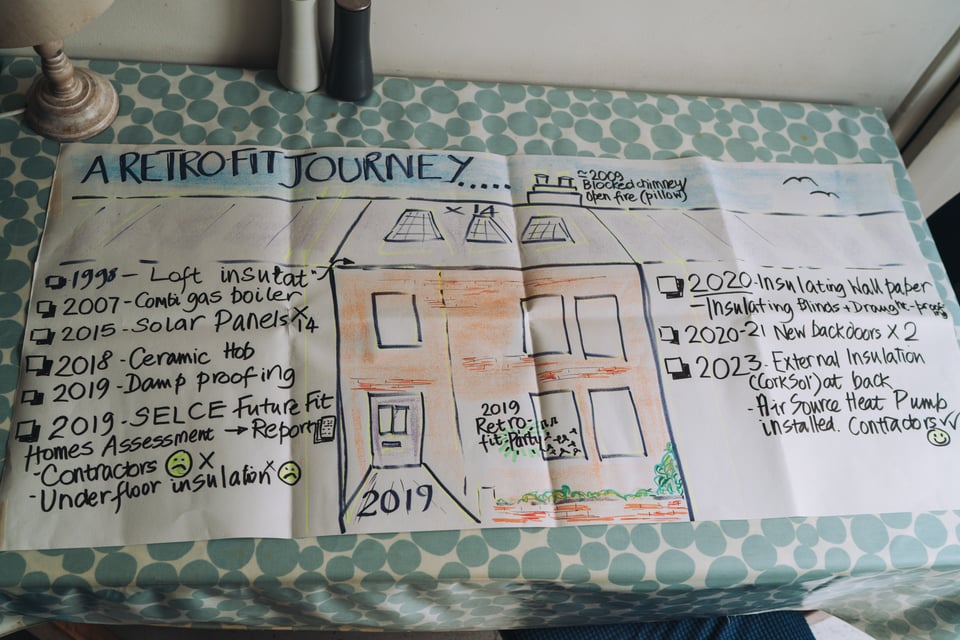 A RETROFIT JOURNEY.....
≈2009
Blocked chimney
Open fire (pillow)
× 14
1998 - Loft insulat"
2007 - Combi gas boiler
2015 - Solar Panels × 14
2018 - Ceramic Hob
2019 - Damp proofing
2019 - SELCE Future Fit
Homes Assessment → Report
- Contractors ×
- Underfloor insulation ×
2019
Retro-
fit Party
2019
2020 - Insulating Wall paper
Insulating Blinds + Draught-proof
2020-21 New back doors × 2
2023 - External Insulation
(CorkSol) at back
- Air Source Heat Pump
installed. Contractors ✓✓